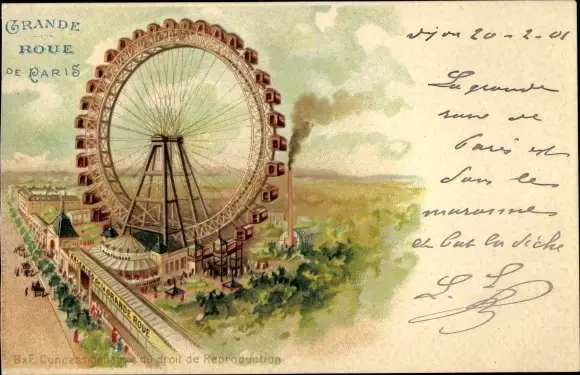 GRANDE
ROUE
DE PARIS
Dijon 20-2-01
La grande
roue de
Paris est
dans les
marasmes
et bat la dèche
L. L.
GALERIE DE LA GRANDE ROUE
RESTAURANT
B x F. Concessionnaires du droit de Reproduction